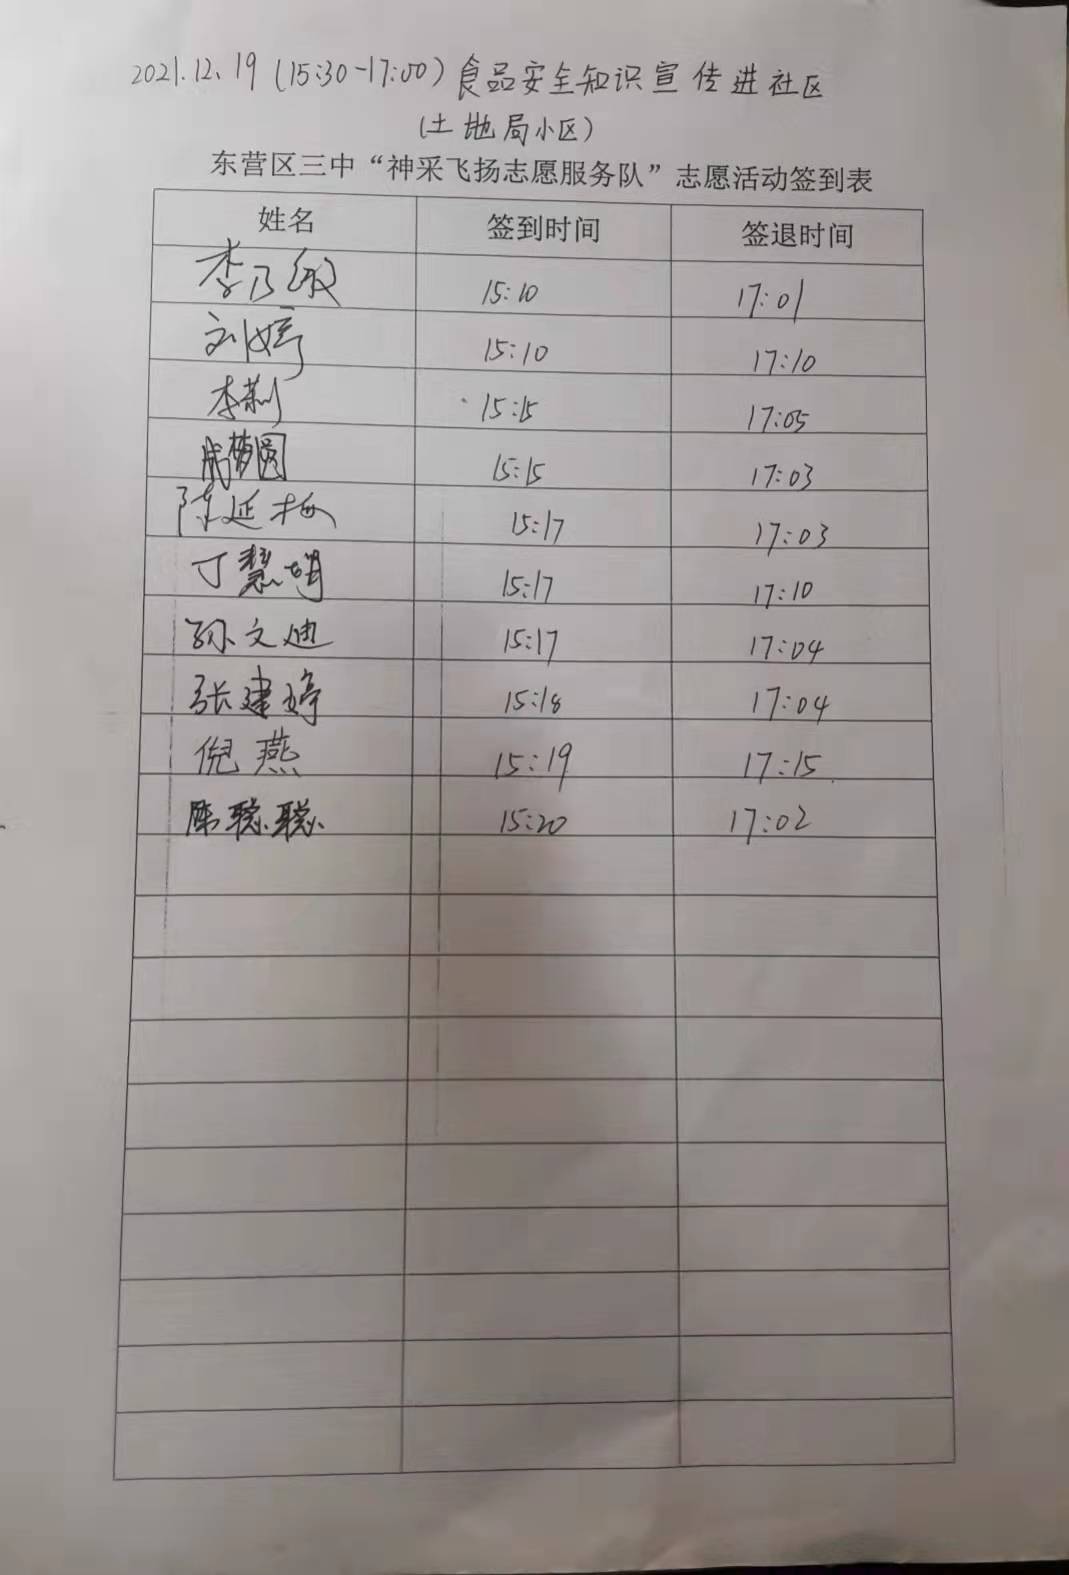 2021.12.19 (15:30-17:00) 食品安全知识宣传进社区
(土地局小区)
东营区三中“神采飞扬志愿服务队”志愿活动签到表
姓名 签到时间 签退时间
李乃敏 15:10 17:01
刘婷 15:10 17:10
李莉 15:15 17:05
梦圆 15:15 17:03
陈延梅 15:17 17:03
丁慧 15:17 17:10
孙文迪 15:17 17:04
张建婷 15:18 17:04
倪燕 15:19 17:15
陈聪聪 15:20 17:02